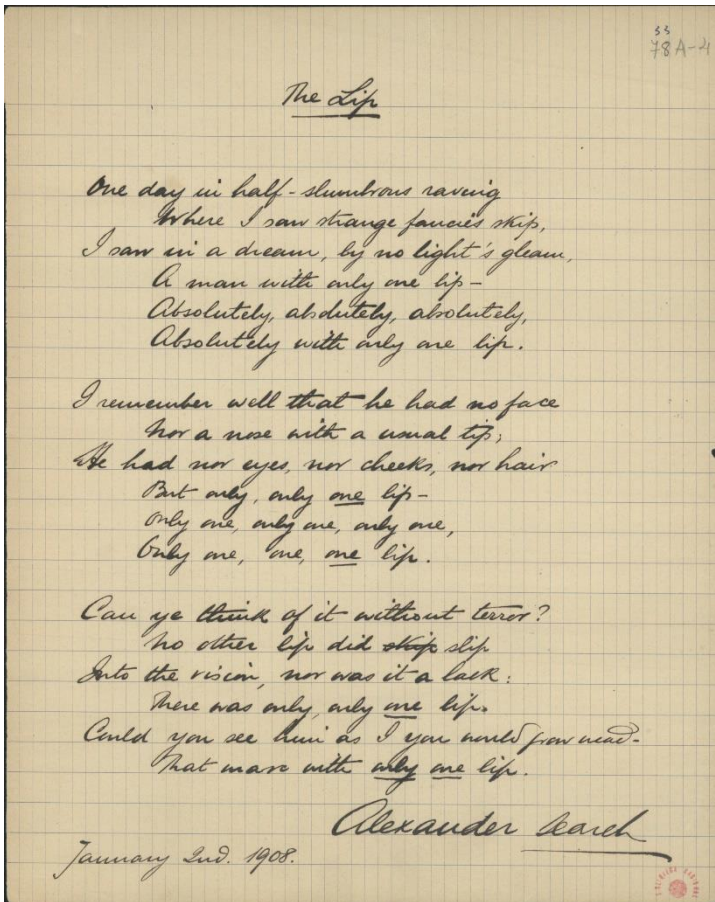 55
78A-21
The Lip
One day in half-slumbrous raving
Where I saw strange fancies skip,
I saw in a dream, by no light's gleam,
A man with only one lip —
Absolutely, absolutely, absolutely,
Absolutely with only one lip.
I remember well that he had no face
Nor a nose with a usual tip;
He had nor eyes, nor cheeks, nor hair
But only, only one lip —
Only one, only one, only one,
Only one, one, one lip.
Can ye think of it without terror?
No other lip did skip slip
Into the vision, nor was it a lack:
There was only, only one lip.
Could you see him as I you would grow mad —
That man with only one lip.
Alexander Search
January 2nd. 1908.